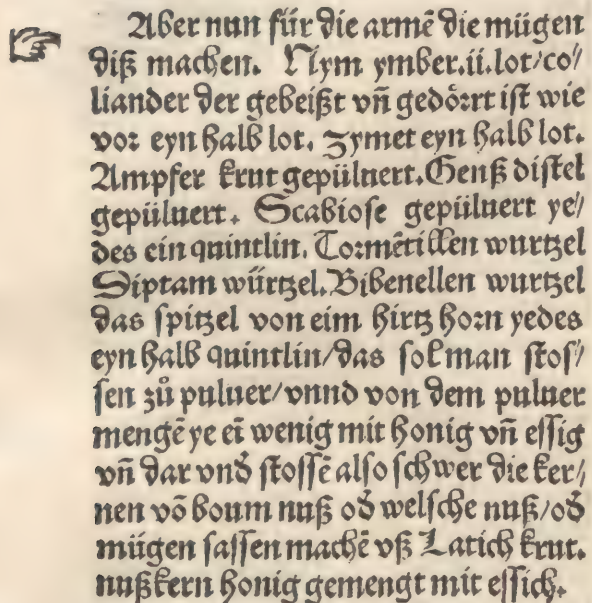 Aber nun für die armē die mügen
diß machen. Nym ymber.ii.lot/co⸗
liander der gebeißt vn̄ gedörrt ist wie
vor eyn halb lot. zymet eyn halb lot.
Ampfer krut gepüluert. Genß distel
gepüluert. Scabiose gepüluert ye⸗
des ein quintlin. Tormētillen wurtzel
Diptam würtzel. Bibenellen wurtzel
das spitzel von eim hirtz horn yedes
eyn halb quintlin/das sol man stos⸗
sen zů puluer/vnnd von dem puluer
mengē ye eī wenig mit honig vn̄ essig
vn̄ dar vnd̄ stossē also schwer die ker⸗
nen vō boum nuß od̄ welsche nuß/od̄
mügen sassen machē vß Latich krut.
nußkern honig gemengt mit essich.